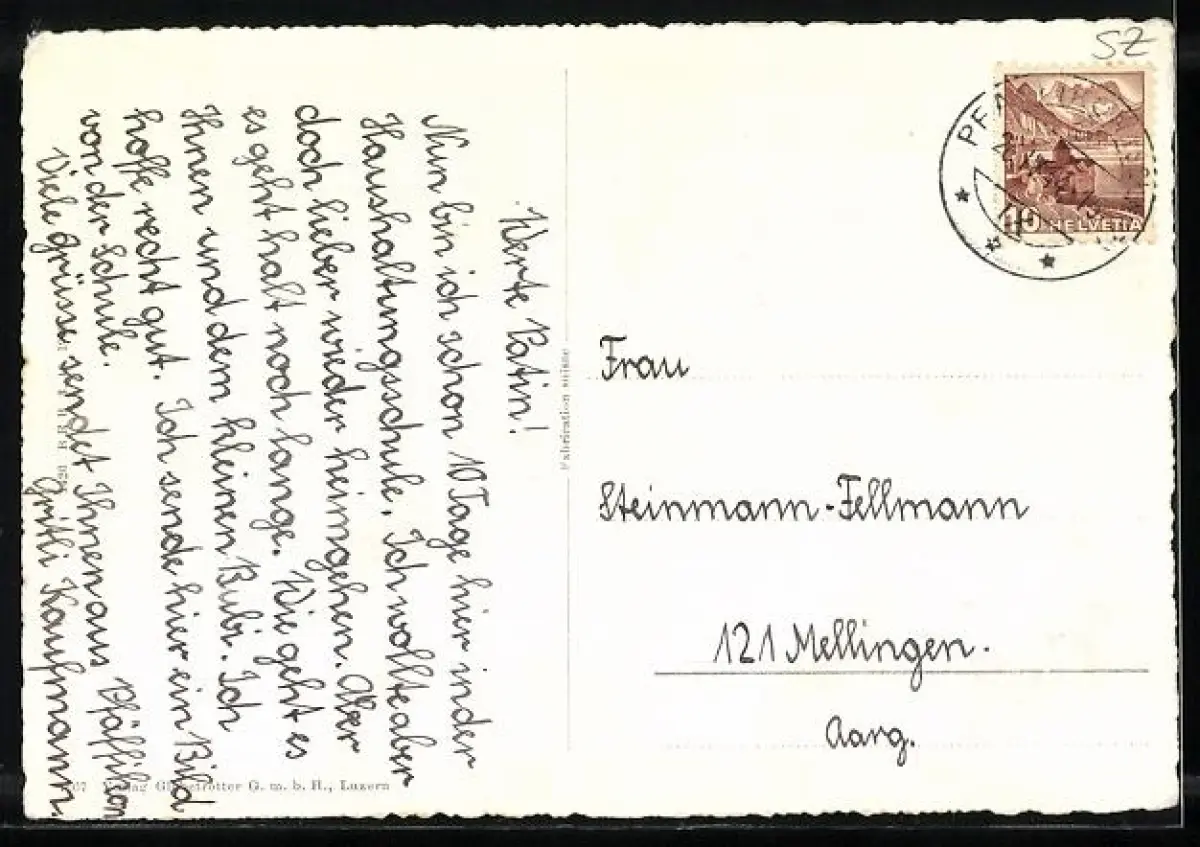 Werte Patin!
Nun bin ich schon 10 Tage hier in der
Haushaltungsschule. Ich wollte aber
doch lieber wieder heimgehen. Aber
es geht halt noch lange. Wie geht es
Ihnen und dem kleinen Bubi. Ich
hoffe recht gut. Ich sende hier ein Bild
von der Schule.
Viele Grüsse sendet Ihnen aus Pfäffikon
Gritli Kaufmann
Fabrication suisse
Globetrotter G. m. b. H., Luzern
SZ
10 HELVETIA
Frau
Steinmann-Fellmann
121 Mellingen.
Aarg.